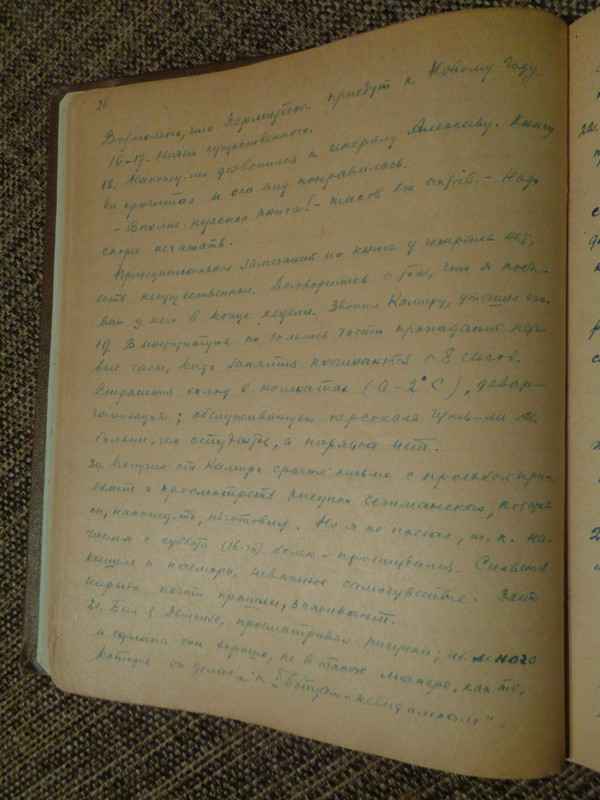 26
Возможно, что Пермитины приедут к Новому году.
16-17. Ничего существенного.
18. Наконец-то дозвонился к генералу Алексееву. Книгу
он прочитал и она ему понравилась.
- Вполне нужная книга! - таков его ответ. - Надо
скорее печатать.
Принципиальных замечаний по книге у генерала нет,
есть несущественные. Договорились о том, что я побы-
ваю у него в конце недели. Звонил Камиру, утешил его.
19. В институтах по большей части пропадают пер-
вые часы, когда занятия начинаются с 8 часов.
Страшный холод в комнатах (а -2° С), дезор-
ганизация; обслуживающего персонала чуть-ли не
больше, чем студентов, а порядка нет.
20. Получил от Камира срочное письмо с просьбой при-
ехать и просмотреть рисунки, которые
он, наконец-то, изготовил. Но я не поехал, т. к. на-
чиная с субботы (16-го) болею - простудился. Сильный
кашель и насморк, неважное самочувствие. Зато
нарывы почти прошли, заживают.
21. Был в Детгизе, просматривал рисунки; их много
и сделаны они хорошо, но в такой манере, как те,
которые он делал к "Бойцам-невидимкам".